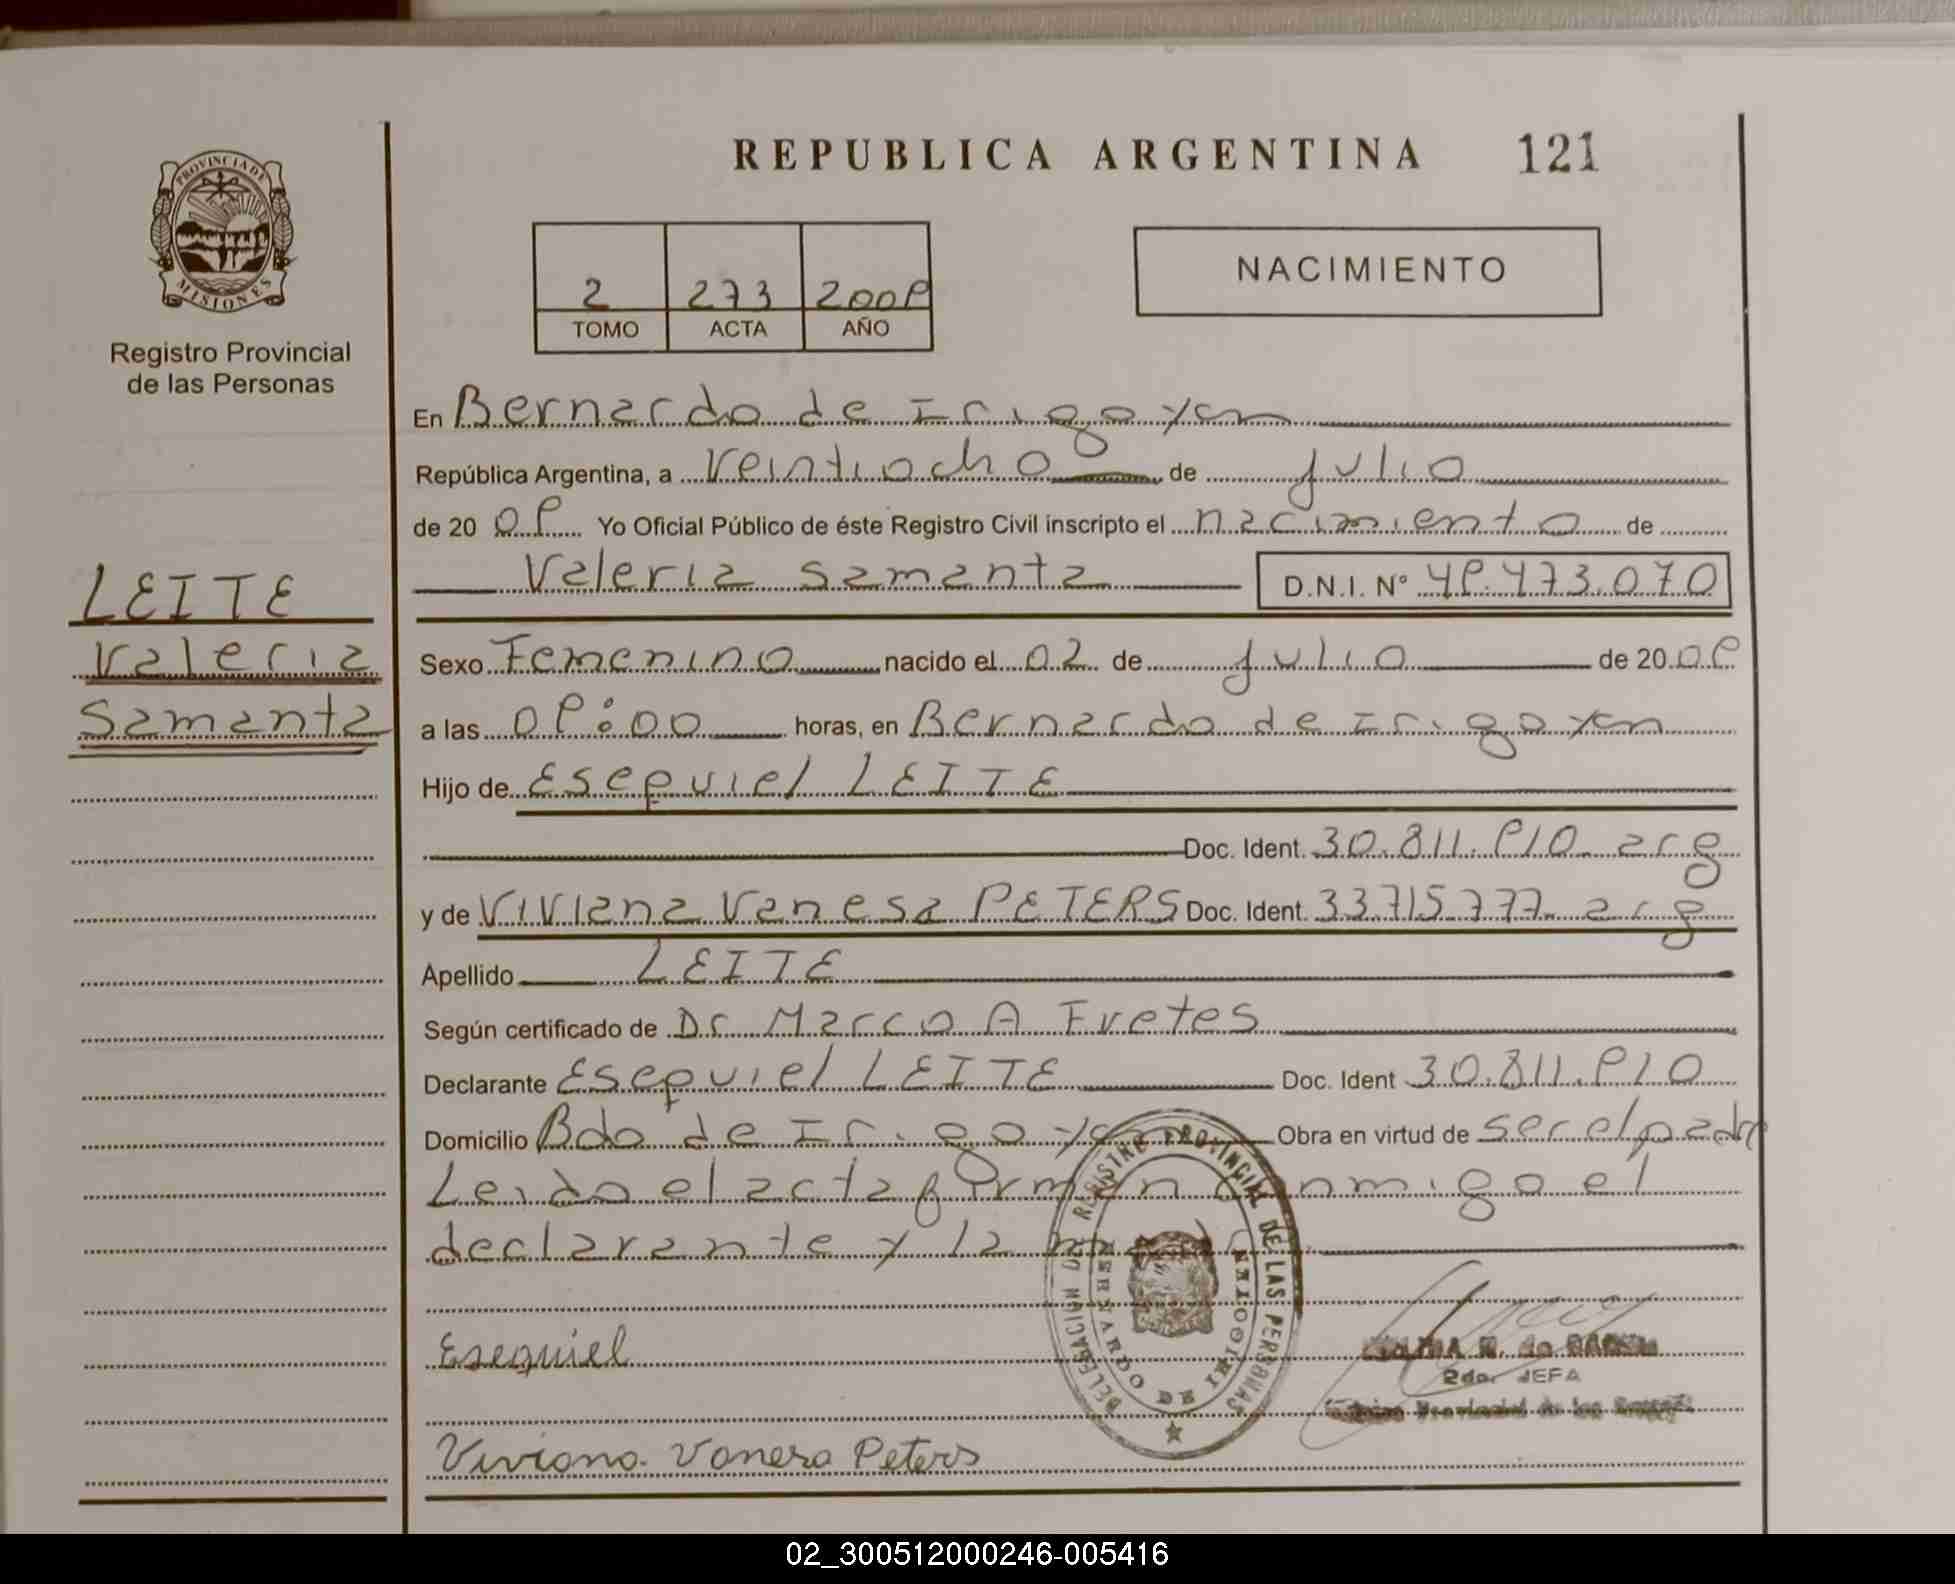 REPUBLICA ARGENTINA 121
PROVINCIA DE
MISIONES
Registro Provincial
de las Personas
2 273 2009
TOMO ACTA AÑO
NACIMIENTO
En Bernardo de Irigoyen
República Argentina, a Veintiocho de julio
de 20 09 Yo Oficial Público de éste Registro Civil inscripto el nacimiento de
Valeria Samanta D.N.I. N° 49.473.070
LEITE
Valeria
Samanta
Sexo Femenino nacido el 02 de julio de 20 09
a las 09:00 horas, en Bernardo de Irigoyen
Hijo de Esequiel LEITE
Doc. Ident. 30.811.910 arg
y de Viviana Vanesa PETERS Doc. Ident. 33.715.777 arg
Apellido LEITE
Según certificado de Dr Marco A Fretes
Declarante Esequiel LEITE Doc. Ident 30.811.910
Domicilio Bdo de Irigoyen Obra en virtud de ser el padre
Leido el acta firman conmigo el
declarante y la madre
DELEGACION DE REGISTRE PROVINCIAL DE LAS PERSONAS
BERNARDO DE IRIGOIEN
Esequiel
2da. JEFA
Provincial de las
Viviana Vanesa Peters
02_300512000246-005416